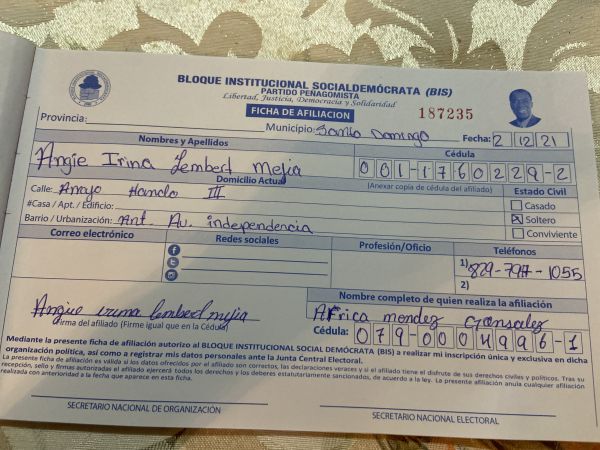 BLOQUE INSTITUCIONAL SOCIALDEMÓCRATA (BIS)
PARTIDO PEÑAGOMISTA
Libertad, Justicia, Democracia y Solidaridad
FICHA DE AFILIACION 187235
Provincia: Municipio: Santo Domingo Fecha: 2 12 21
Nombres y Apellidos Cédula
Angie Irina Lembert Mejia 001-1760229-2
Domicilio Actual (Anexar copia de cédula del afiliado) Estado Civil
Calle: Arroyo Hondo III Casado
#Casa / Apt. / Edificio: X Soltero
Barrio / Urbanización: Ant. Av. independencia Conviviente
Correo electrónico Redes sociales Profesión/Oficio Teléfonos
1) 829-797-1055
2)
Nombre completo de quien realiza la afiliación
Angie irina lembert mejia Africa mendez Gonzalez
Firma del afiliado (Firme igual que en la Cédula) Cédula: 079-0004996-1
Mediante la presente ficha de afiliación autorizo al BLOQUE INSTITUCIONAL SOCIAL DEMÓCRATA (BIS) a realizar mi inscripción única y exclusiva en dicha
organización política, así como a registrar mis datos personales ante la Junta Central Electoral.
La presente ficha de afiliación es válida si los datos ofrecidos por el afiliado son correctos, las declaraciones veraces y si el afiliado tiene el disfrute de sus derechos civiles y políticos. Tras su
recepción, sello y firmas autorizadas el afiliado ejercerá todos los derechos y los deberes estatutariamente sancionados, de acuerdo a la ley. La presente afiliación anula cualquier afiliación
realizada con anterioridad a la fecha que aparece en esta ficha.
SECRETARIO NACIONAL DE ORGANIZACIÓN SECRETARIO NACIONAL ELECTORAL